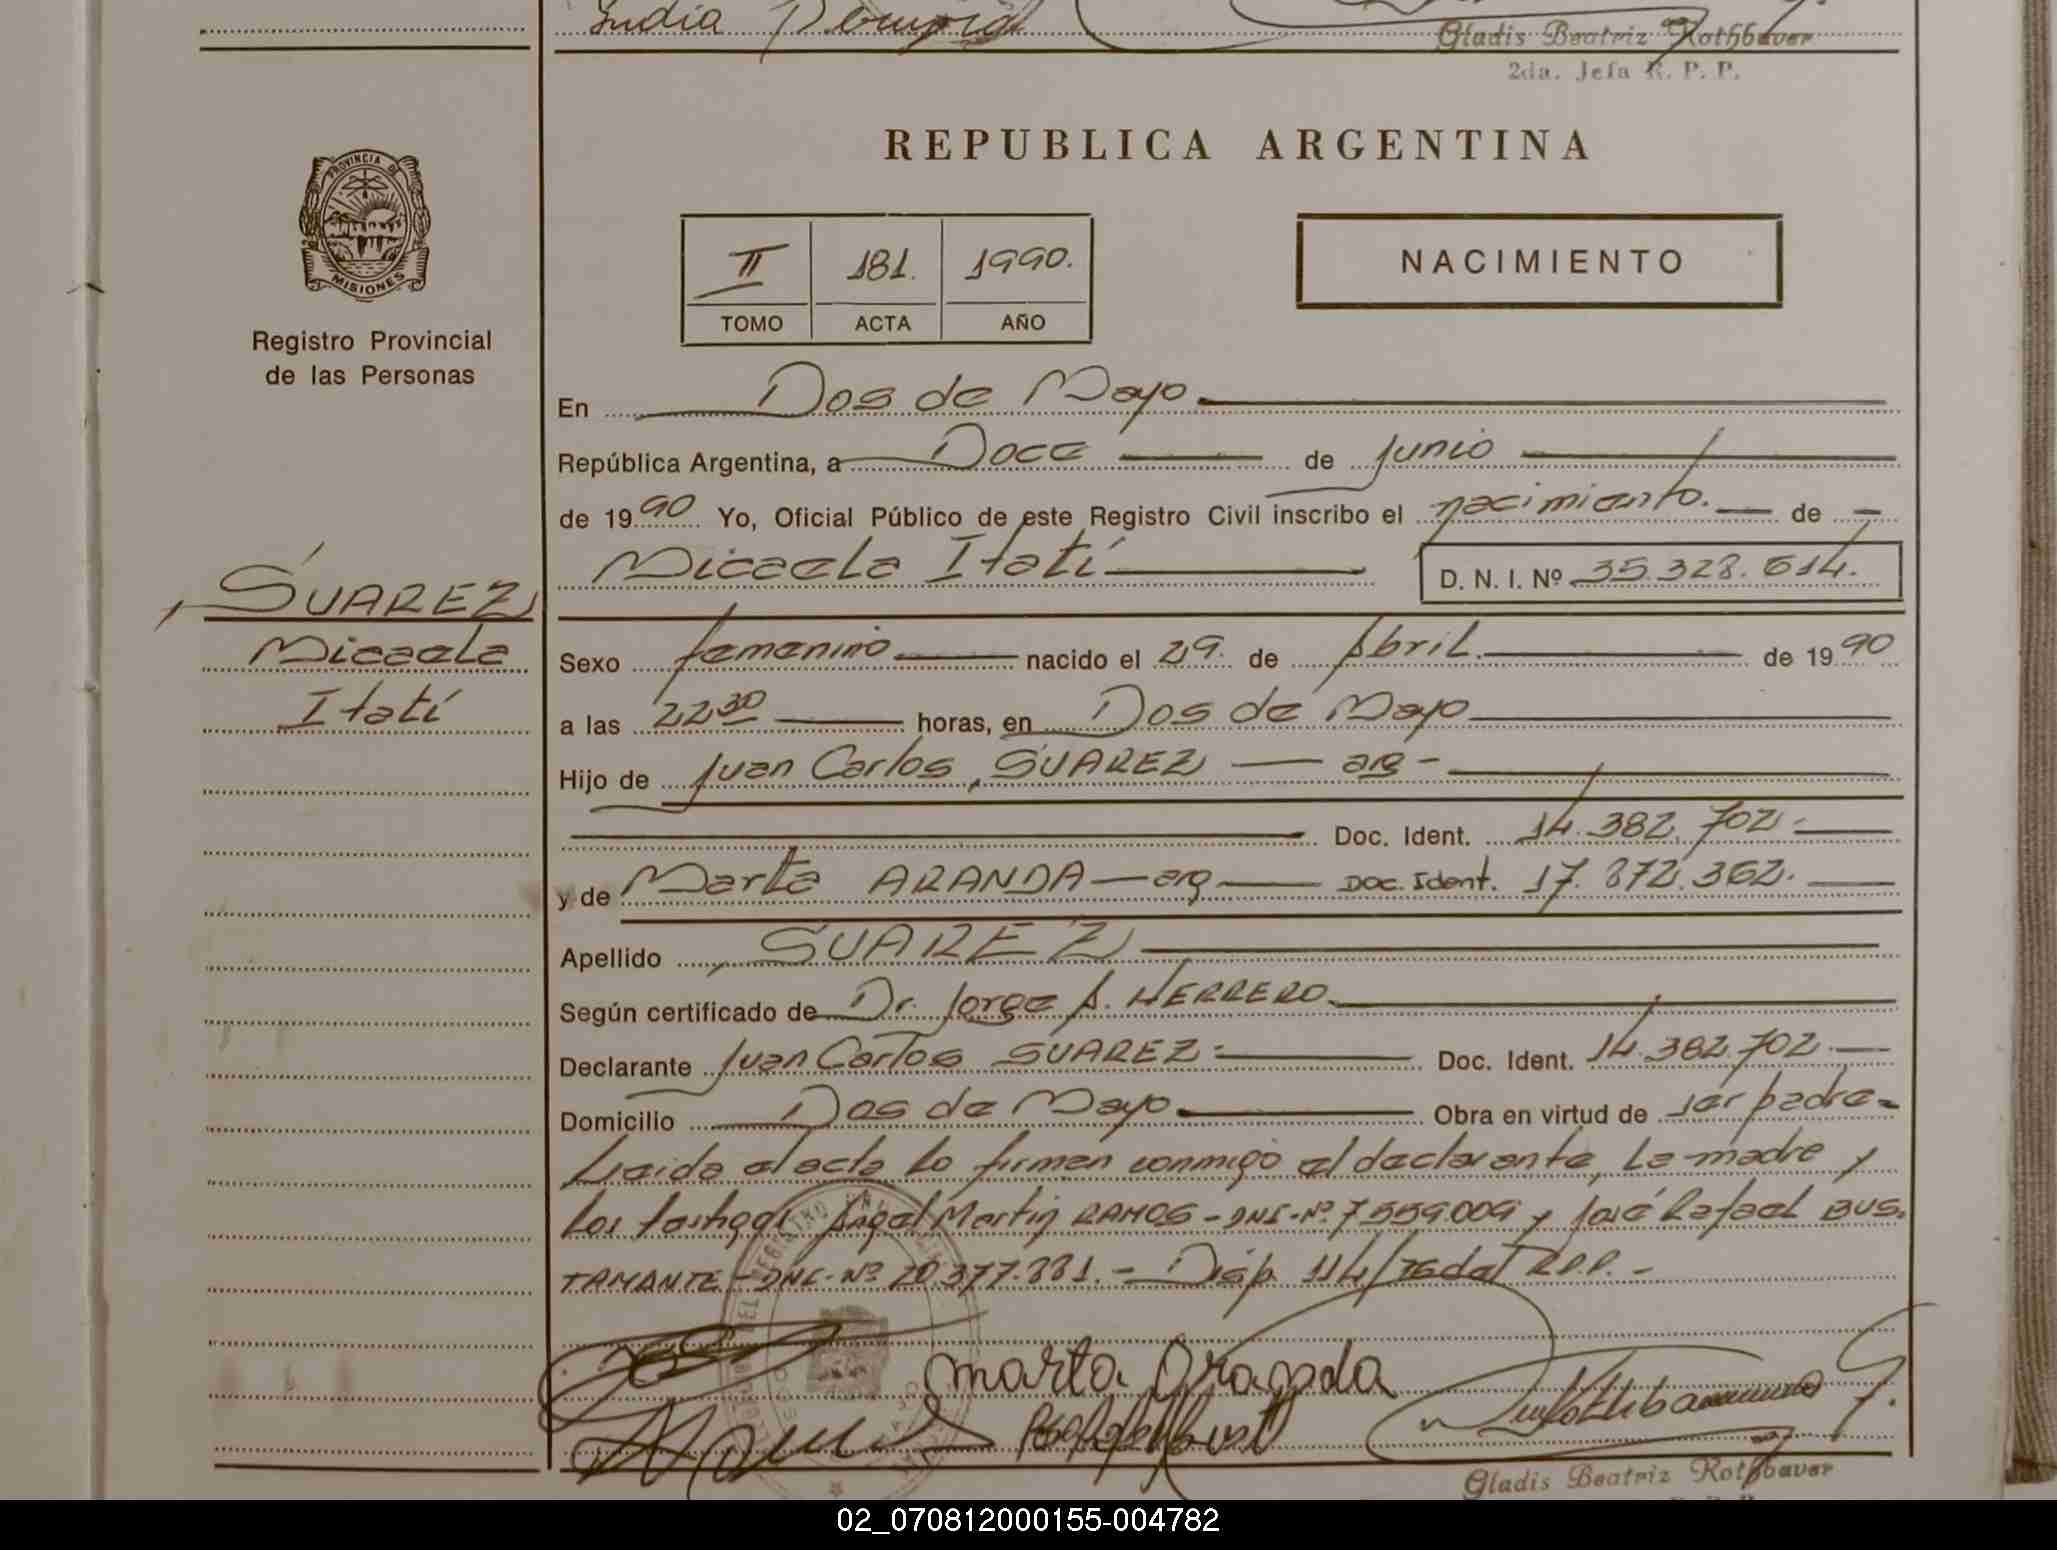 India
Gladis Beatriz Rothbaver
2da. Jefa R. P. P.
REPUBLICA ARGENTINA
PROVINCIA DE
MISIONES
Registro Provincial
de las Personas
II 181. 1990.
TOMO ACTA AÑO
NACIMIENTO
En Dos de Mayo
República Argentina, a Doce de Junio
de 1990 Yo, Oficial Público de este Registro Civil inscribo el nacimiento. de
Micaela Itatí D. N. I. Nº 35.328.614.
SUAREZ
Micaela
Itatí
Sexo femenino nacido el 29. de Abril. de 1990
a las 22 30 horas, en Dos de Mayo
Hijo de Juan Carlos, SUAREZ — arg -
Doc. Ident. 14.382.702-
y de Marta ARANDA — arg — Doc. Ident. 17.872.362.
Apellido SUAREZ
Según certificado de Dr. Jorge A. HERRERO.
Declarante Juan Carlos SUAREZ- Doc. Ident. 14.382.702-
Domicilio Dos de Mayo Obra en virtud de ser padre-
Leida el acta lo firman conmigo el declarante, la madre y
los testigos Angel Martin RAMOS - DNI-Nº 7.559.009 y José Rafael BUS-
TAMANTE - DNI-Nº 20.377.881. - Disp. 114/76 del R.P.P. -
Marta
Gladis Beatriz Rothbaver
02_070812000155-004782